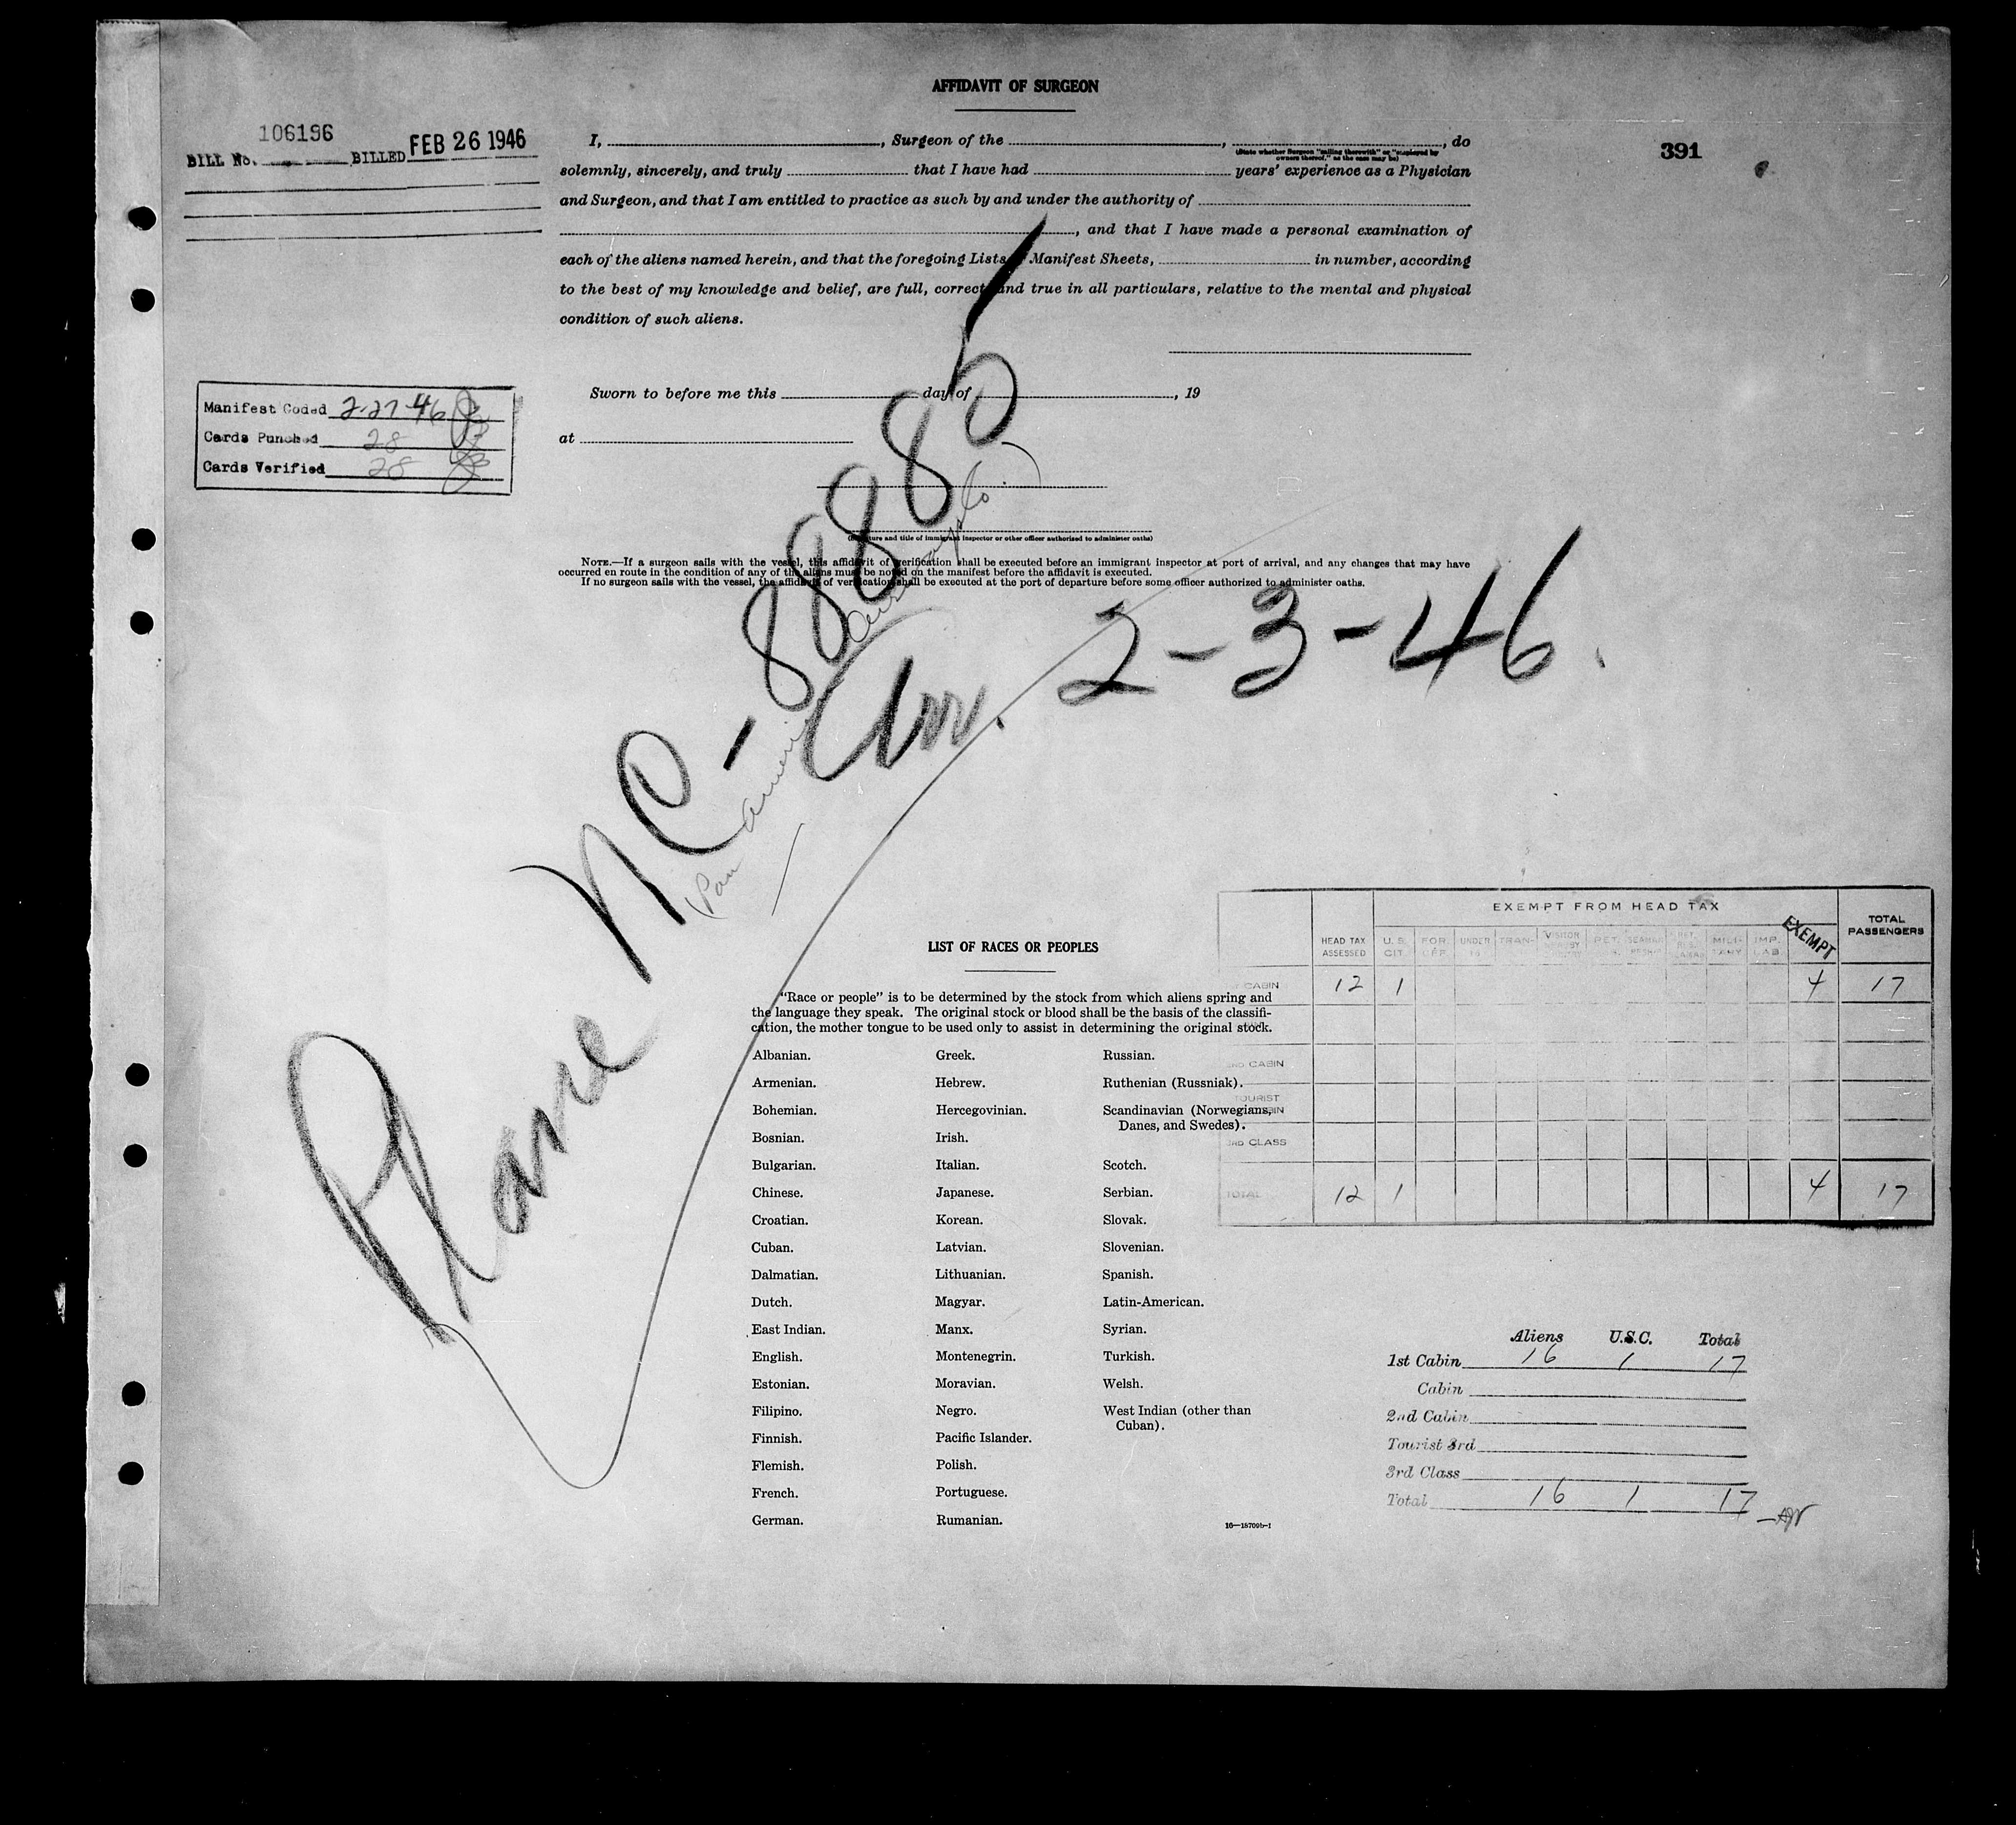 AFFIDAVIT OF SURGEON
391
106196
BILL No. BILLED FEB 26 1946
I, , Surgeon of the , , do
(State whether Surgeon "sailing therewith" or "employed by
owners thereof," as the case may be)
solemnly, sincerely, and truly that I have had years' experience as a Physician
and Surgeon, and that I am entitled to practice as such by and under the authority of
, and that I have made a personal examination of
each of the aliens named herein, and that the foregoing Lists Manifest Sheets, in number, according
to the best of my knowledge and belief, are full, correct and true in all particulars, relative to the mental and physical
condition of such aliens.
Manifest Coded 2-27-46
Cards Punched 28
Cards Verified 28
Sworn to before me this day of , 19
at
(Signature and title of immigrant inspector or other officer authorized to administer oaths)
NOTE.—If a surgeon sails with the vessel, this affidavit of verification shall be executed before an immigrant inspector at port of arrival, and any changes that may have
occurred en route in the condition of any of the aliens must be noted on the manifest before the affidavit is executed.
If no surgeon sails with the vessel, the affidavit of verification shall be executed at the port of departure before some officer authorized to administer oaths.
Plane NC-88885
Arr. 2-3-46.
LIST OF RACES OR PEOPLES
"Race or people" is to be determined by the stock from which aliens spring and
the language they speak. The original stock or blood shall be the basis of the classifi-
cation, the mother tongue to be used only to assist in determining the original stock.
Albanian.
Armenian.
Bohemian.
Bosnian.
Bulgarian.
Chinese.
Croatian.
Cuban.
Dalmatian.
Dutch.
East Indian.
English.
Estonian.
Filipino.
Finnish.
Flemish.
French.
German.
Greek.
Hebrew.
Hercegovinian.
Irish.
Italian.
Japanese.
Korean.
Latvian.
Lithuanian.
Magyar.
Manx.
Montenegrin.
Moravian.
Negro.
Pacific Islander.
Polish.
Portuguese.
Rumanian.
Russian.
Ruthenian (Russniak).
Scandinavian (Norwegians,
Danes, and Swedes).
Scotch.
Serbian.
Slovak.
Slovenian.
Spanish.
Latin-American.
Syrian.
Turkish.
Welsh.
West Indian (other than
Cuban).
16—18709b-1
EXEMPT FROM HEAD TAX
HEAD TAX ASSESSED U. S. CIT. FOR. OFF. UNDER 16 TRAN- VISITOR RET. MILI- TARY IMP. LAB. EXEMPT TOTAL PASSENGERS
CABIN 12 1 4 17
2ND CABIN
TOURIST CABIN
3RD CLASS
TOTAL 12 1 4 17
Aliens U.S.C. Total
1st Cabin 16 1 17
Cabin
2nd Cabin
Tourist 3rd
3rd Class
Total 16 1 17